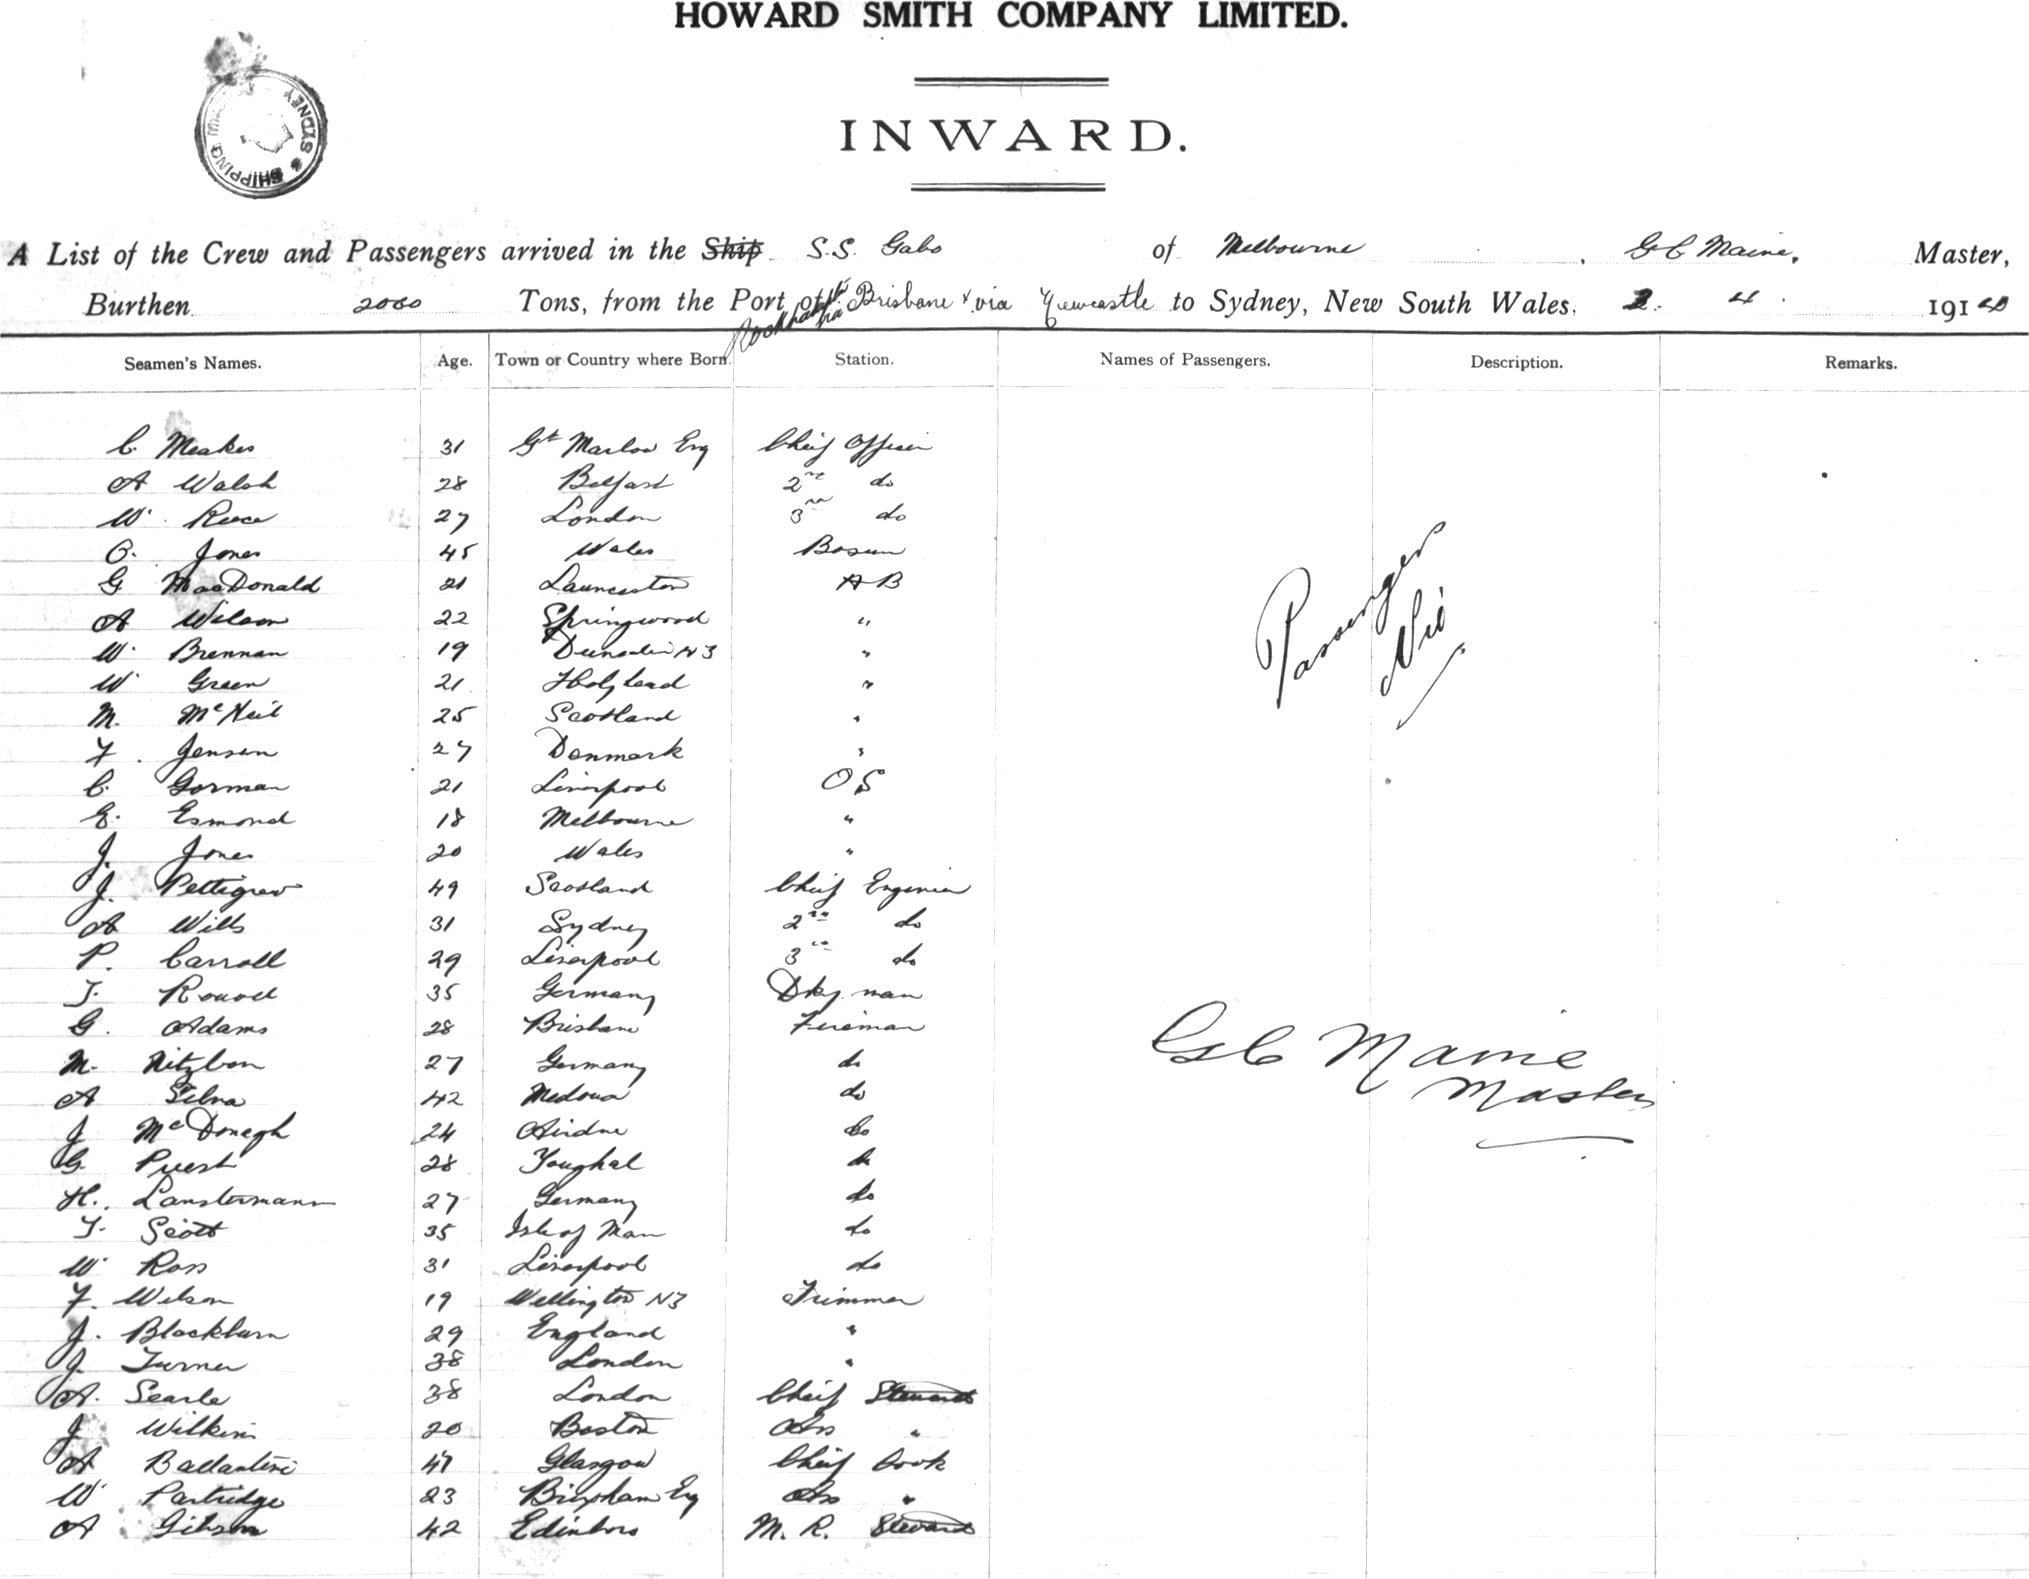 HOWARD SMITH COMPANY LIMITED.
INWARD.
SHIPPING SYDNEY
A List of the Crew and Passengers arrived in the Ship S.S. Gabo of Melbourne, G C Maine, Master,
Burthen 2060 Tons, from the Port of Brisbane & via Newcastle to Sydney, New South Wales, 2. 4. 191
Seamen's Names. Age. Town or Country where Born. Station. Names of Passengers. Description. Remarks.
C. Meakes 31 Gt Marlow Eng Chief Officer
A Walsh 28 Belfast 2nd do
W. Reece 27 London 3rd do
O. Jones 45 Wales Bosun
G MacDonald 21 Launceston AB
A Wilson 22 Springwood "
W. Brennan 19 Dunedin NZ "
W Green 21 Holyhead "
M. McNeil 25 Scotland "
F. Jensen 27 Denmark "
C. Gorman 21 Liverpool OS
E. Esmond 18 Melbourne "
J. Jones 20 Wales "
J. Pettigrew 49 Scotland Chief Engineer
A Wills 31 Sydney 2nd do
P. Carroll 29 Liverpool 3rd do
T. 35 Germany Dky man
G. Adams 28 Brisbane Fireman
M. 27 Germany do
A 42 do
J McDonagh 24 do
G. Priest 28 Youghal do
H. Lanstermann 27 Germany do
T. Scott 35 Isle of Man do
W Ross 31 Liverpool do
F. Wilson 19 Wellington NZ Trimmer
J. Blackburn 29 England "
J Turner 38 London "
A. Searle 38 London Chief Steward
J Wilkins 20 Boston Ass "
A Ballantine 47 Glasgow Chief Cook
W Partridge 23 Brixham Eng Ass "
A Gibson 42 Edinboro M. R. Steward
Passengers
Nil
G C Maine
Master